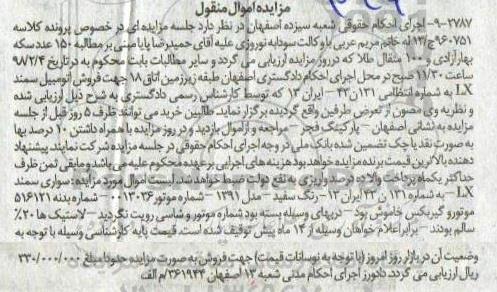 مزایده اموال منقول
۹-۲۷۸۷- اجرای احکام حقوقی شعبه سیزده اصفهان در نظر دارد جلسه مزایده ای در خصوص پرونده کلاسه
۹۶۰۷۵۱ج۱۳ له خانم مریم عربی با وکالت سودابه نوروزی علیه آقای حمیدرضا پایا مبنی بر مطالبه ۱۵۰ عدد سکه
بهار آزادی و ۱۰۰ مثقال طلا که در روز مزایده ارزیابی می گردد و سایر مطالبات بابت محکوم به در تاریخ ۹۸/۳/۴
ساعت ۱۱/۳۰ صبح در محل اجرای احکام دادگستری اصفهان طبقه زیرزمین اتاق ۱۸ جهت فروش اتومبیل سمند
LX به شماره انتظامی ۱۳۱ن۴۳- ایران ۱۳ که توسط کارشناس رسمی دادگستری به شرح ذیل ارزیابی شده
و نظریه وی مصون از تعرض طرفین واقع گردیده برگزار نماید طالبین خرید می توانند ظرف ۵ روز قبل از جلسه
مزایده به نشانی اصفهان - پارکینگ فجر - مراجعه و از اموال بازدید و در روز مزایده با همراه داشتن ۱۰ درصد بها
به صورت نقد یا چک تضمین شده بانک ملی در وجه اجرای احکام حقوقی در جلسه مزایده شرکت نمایند پیشنهاد
دهنده بالاترین قیمت برنده مزایده خواهد بود هزینه های اجرایی برعهده محکوم علیه می باشد و مابقی ثمن ظرف
حداکثر یکماه پرداخت والا ده درصد واریزی به نفع دولت ضبط خواهد شد. لیست اموال مورد مزایده: سواری سمند
LX- به شماره ۱۳۱ن۴۳ ایران ۱۳- رنگ سفید - مدل ۱۳۹۱ - شماره موتور ۱۳۰۳۶ - شماره بدنه ۵۱۶۱۲۱
موتور و گیربکس خاموش بود - دربهای وسیله بسته بود شماره موتور و شاسی رویت نگردید - لاستیک ها ۲۰٪
سالم بودند - برابر اعلام خواهان وسیله از ۱۴ ماه پیش توقیف شده است. قیمت پایه کارشناسی وسیله با توجه به
وضعیت آن در بازار روز امروز (با توجه به نوسانات قیمت) جهت فروش به صورت مزایده حدودا مبلغ ۳۳۰/۰۰۰/۰۰۰
ریال ارزیابی می گردد. دادورز اجرای احکام مدنی شعبه ۱۳ اصفهان ۳۶۱۹۴۴/م الف